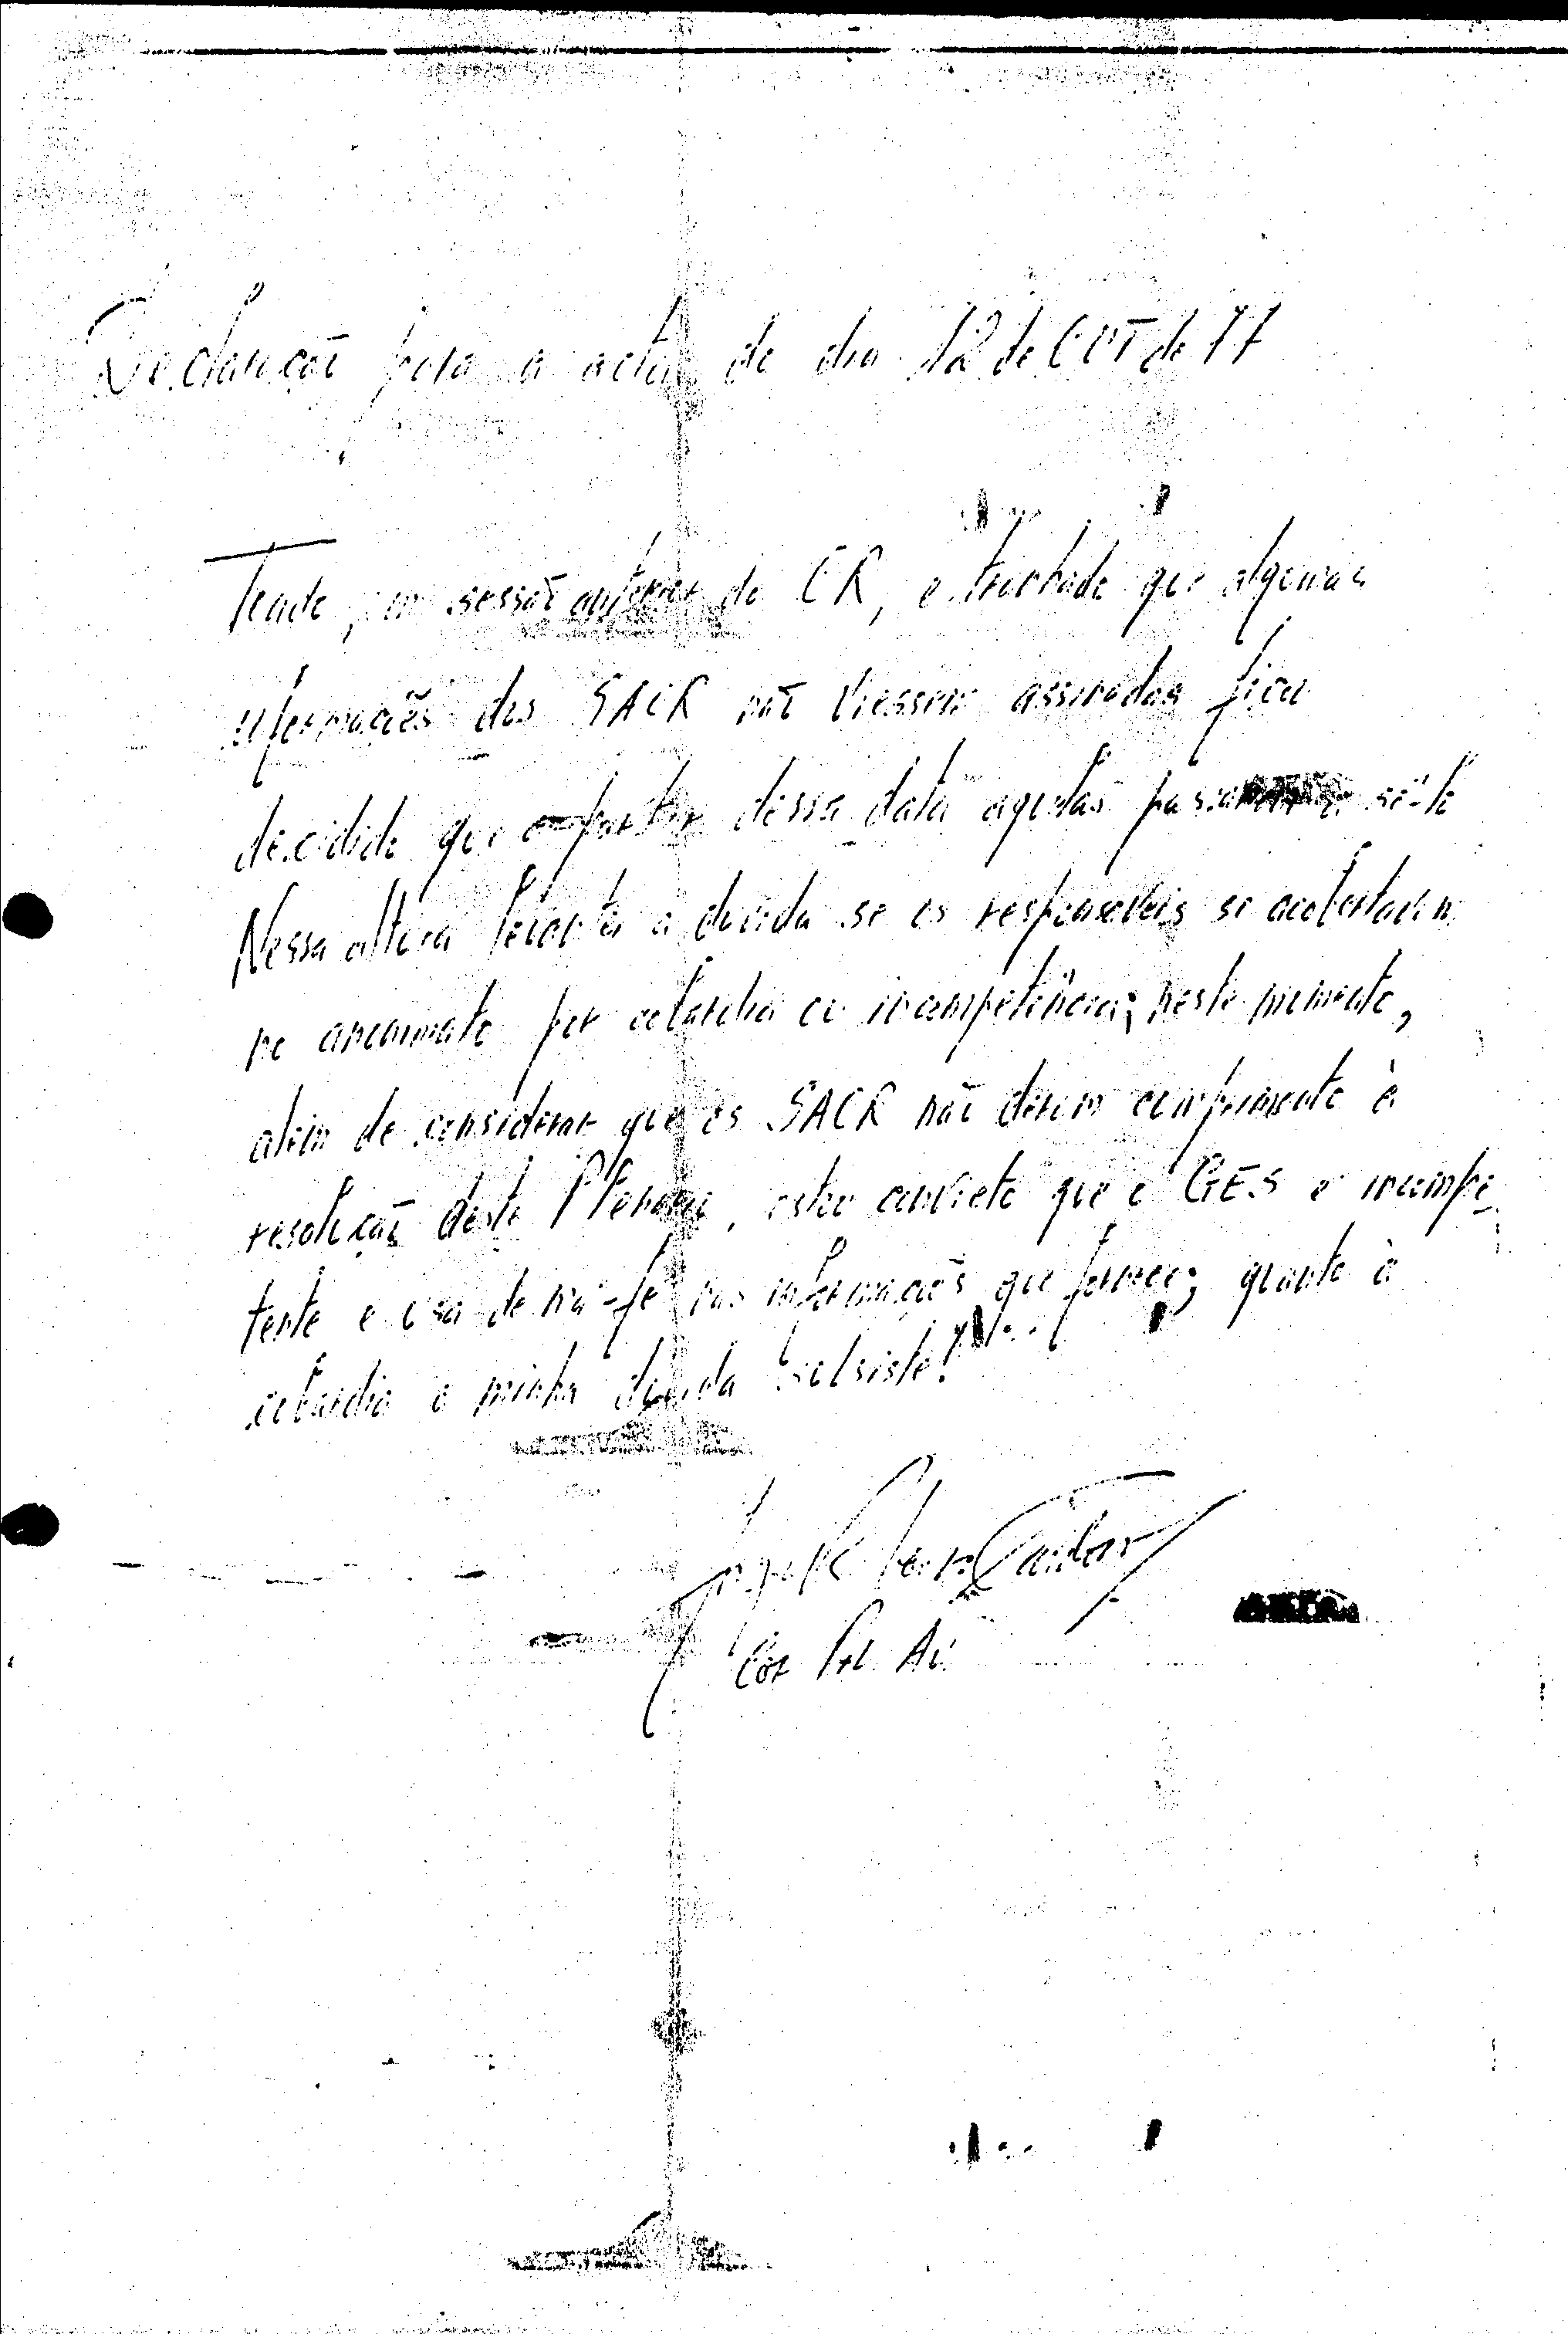 Declaração para a acta do dia 12 de OUT de 77
Tendo, em sessão anterior do CR, estranhado que algumas
informações dos SACR não viessem assinadas ficou
decidido que a partir dessa data aquelas passariam a sê-lo
Nessa altura levantei a dúvida se os responsáveis se acobertavam
no anonimato por cobardia ou incompetência; neste momento,
além de considerar que os SACR não deram cumprimento à
resolução deste Plenário, estou convicto que o GES é incompe_
tente e usa de má-fé nas informações que fornece; quanto à
cobardia a minha dúvida subsiste!
Cap Pil Av